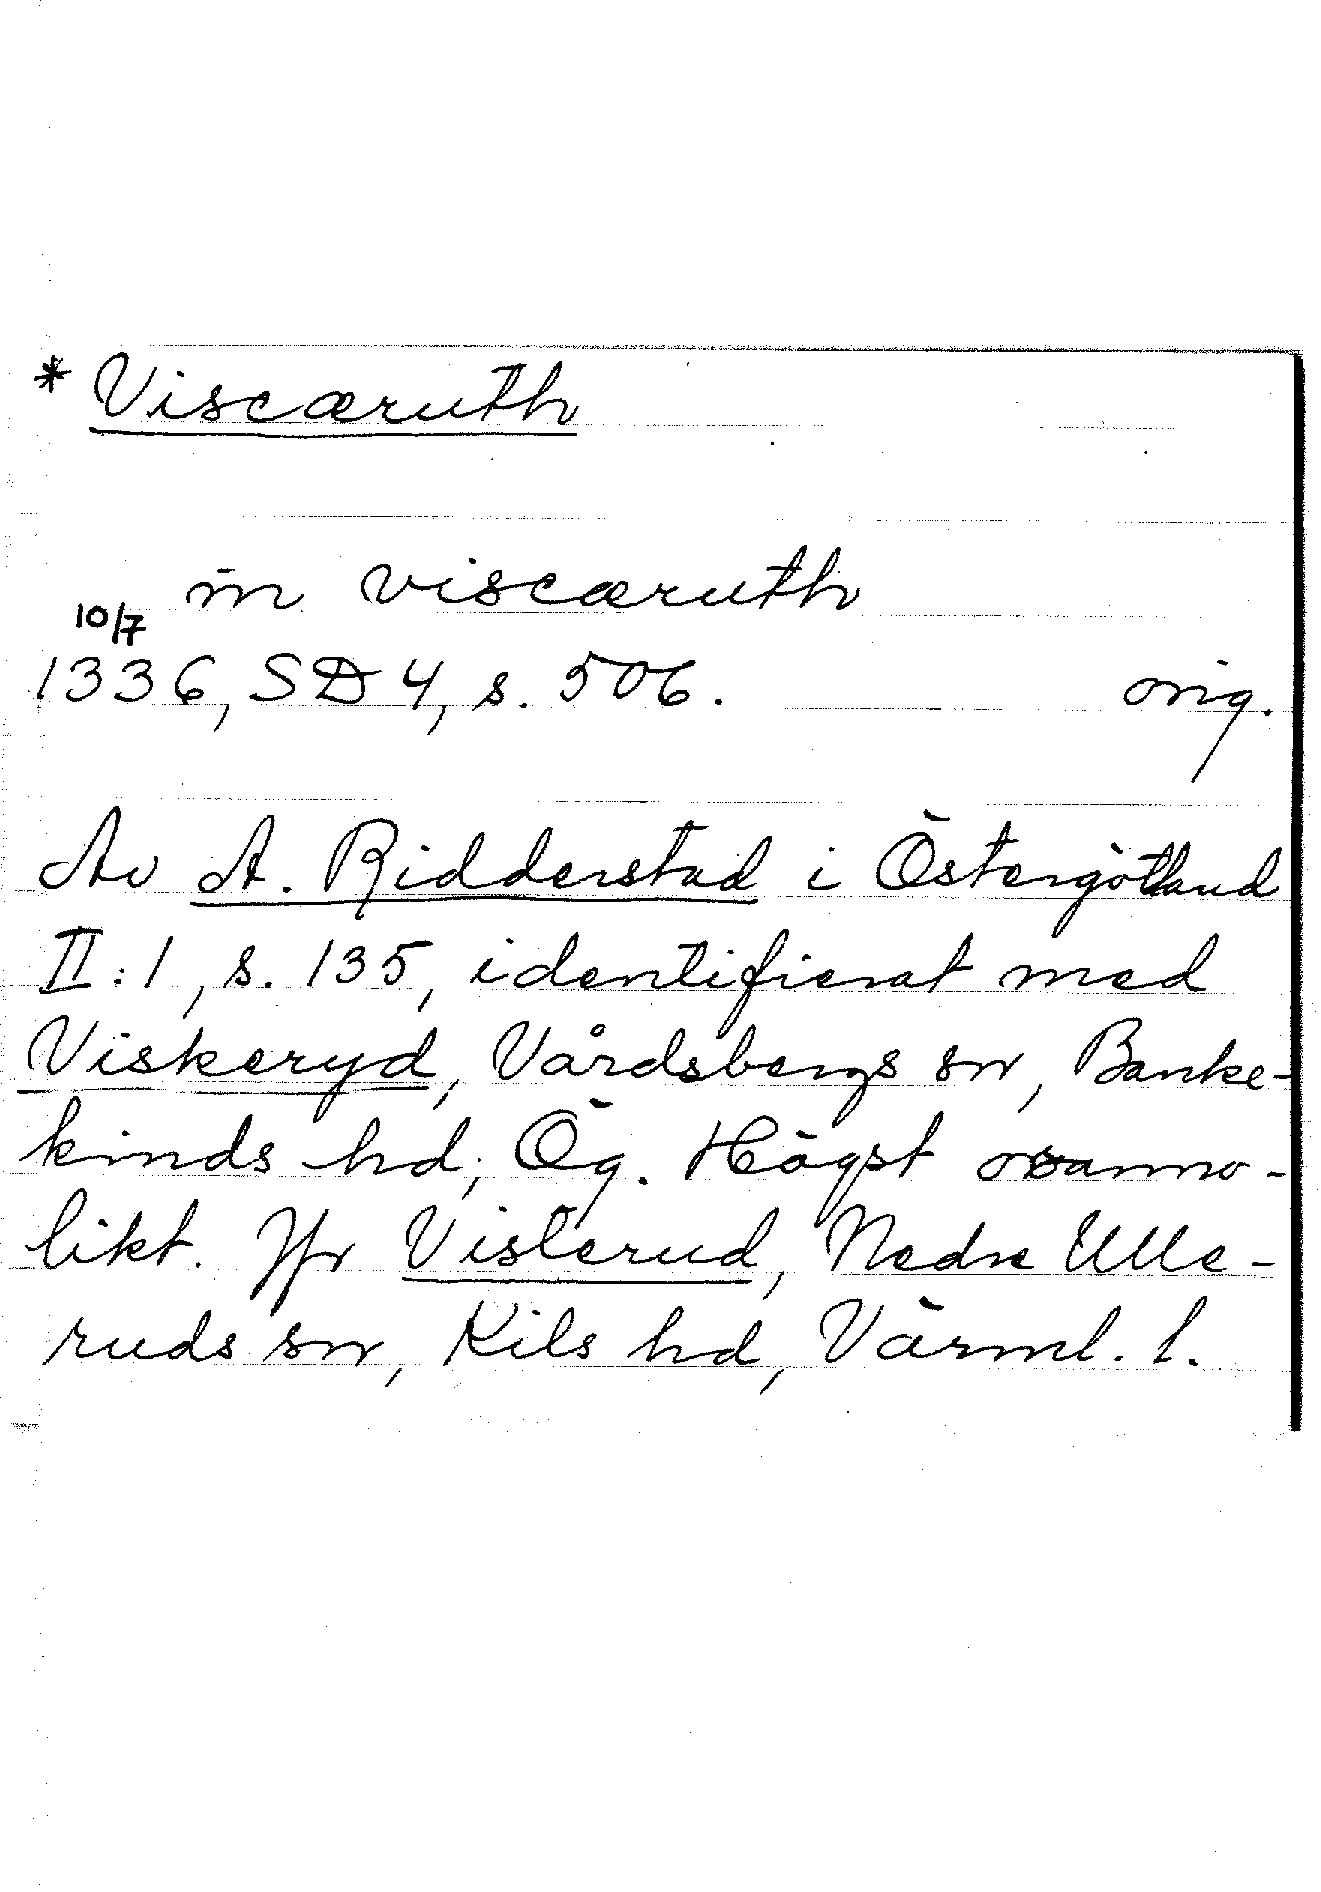 * Viscæruth
in viscæruth
10/7
1336, SD 4, s. 506. orig.
Av A. Ridderstad i Östergötland
II:1, s. 135, identifierat med
Viskeryd, Vårdsbergs sn, Banke-
kinds hd, Ög. Högst osanno-
likt. Jfr Visterud, Nedre Ulle-
ruds sn, Kils hd, Värml. l.